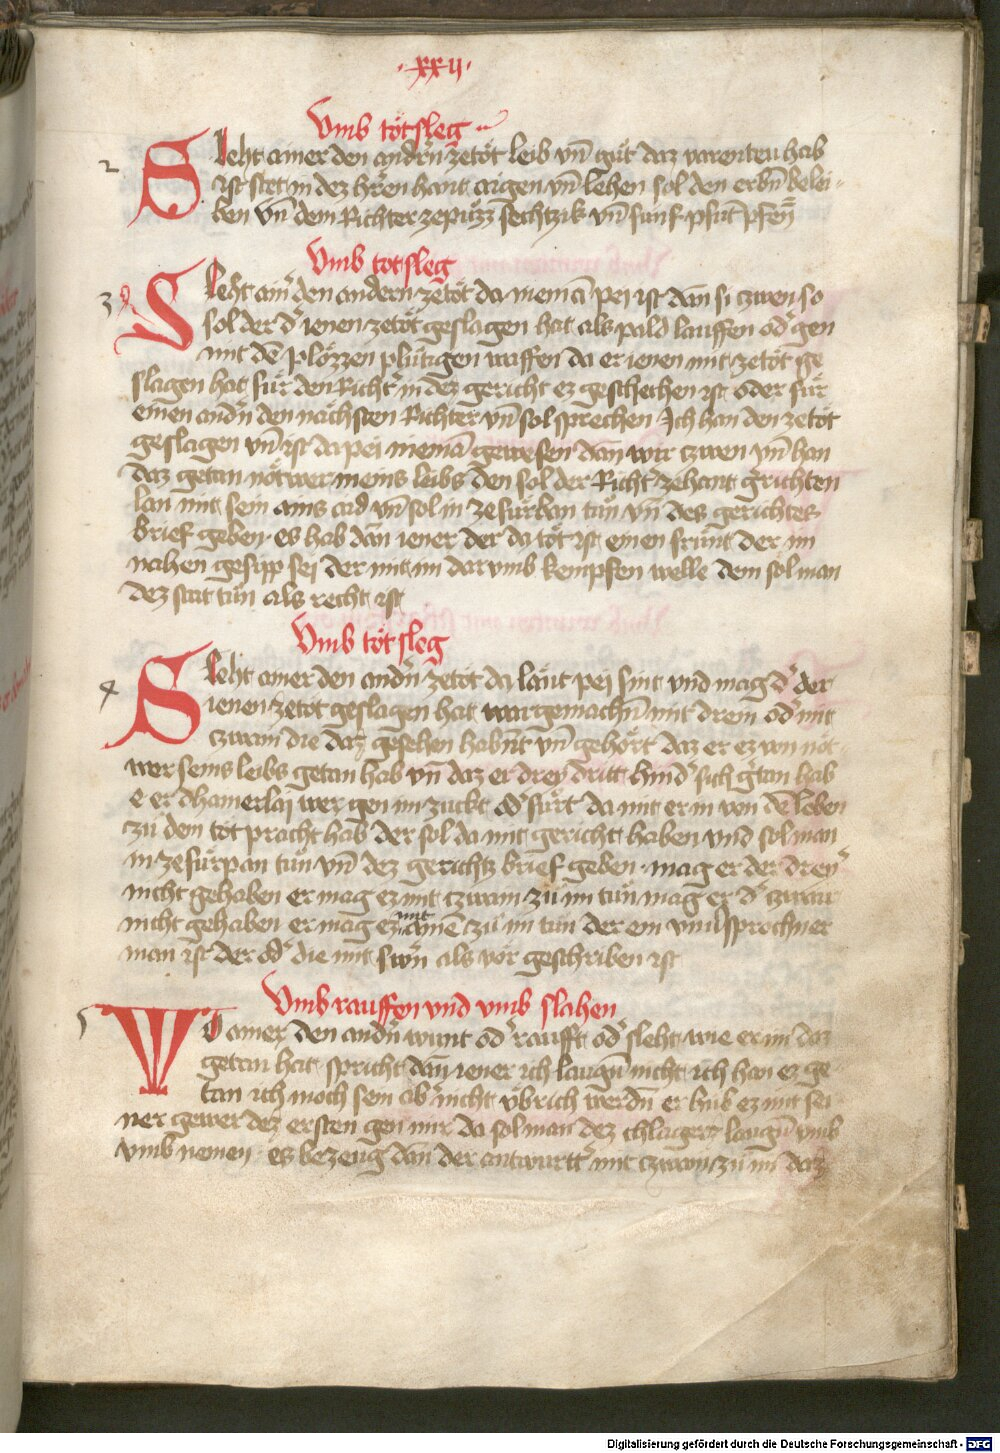 ·xxij·
Vmb tötsleg
2 Sleht ainer den andern zetöt leib vñ gůt daz varentew hab
ist stet in dez h̄ren hant aigen vñ lehen sol den erbñ belei-
ben vñ dem Richter zepůzz sechtzik vñ funf pfut pfeñ
Vmb totsleg
3 Sleht ain̾ den andern zetöt da niemā pei ist dañ si zwen so
sol der d̾ ienen zetöt geslagen hat als pald lauffen od̾ gen
mit dē plözzen plůtigen waffen da er ienen mit zetöt ge
slagen hat für den Richt̾ in dez gericht ez geschechen ist oder für
einen andn̄ den nächsten Richter vñ sol sprechen Jch han den zetöt
geslagen vñ ist da pei niemā gewesen dañ wir zwen vñ han
daz getan nötwer meins leibs den sol der Richt̾ zehant g̾richten
lan mit sein ains aid vñ sol in zefürban tůn vñ des gerichtes
brief geben · es hab dañ iener der da töt ist einen frünt der im
nahen gesipp sei der mit im darvmb kempfen welle dem sol man
dez stat tůn als recht ist
Vmb töt sleg
4 Sleht ainer den andn̄ zetöt da läut pei sint vnd mag d̾ der
ienen zetöt geslagen hat war gemachñ mit drein od̾ mit
zwain die daz gesehen habñt vñ gehört daz er ez von nöt-
wer seins leibs getan hab vñ daz er drey dritt hind̾ sich g̾tan hab
e er dhainerlaȳ wer gen im zuckt od̾ fůrt da mit er in von dē leben
zů dem töt pracht hab der sol da mit gericht haben vnd sol man
in zefürpan tůn vñ dez gerichtz brief geben · mag er der dreȳ
nicht gehaben er mag ez mit zwain zů im tůn mag er d̾ zwair
nicht gehaben er mag ez mit ainē zů im tůn der ein vnuersprochner
man ist der od̾ die mit swern als vör geschriben ist
Vmb rauffen vnd vmb slahen
5 Wo ainer den andn̄ wunt od̾ raufft od̾ sleht wie er im daz
getan hat spricht dañ iener ich laugñ nicht ich han ez ge-
tan ich moch sein ab̾ nicht vbrich werdñ er hub ez mit sei
ner gewer dez ersten gen mir da sol man dez chlagers laugñ vmb
vmb nemen · es bezeug dañ der antwurtt̾ mit zwayn zů im daz
Digitalisierung gefördert durch die Deutsche Forschungsgemeinschaft - DFG